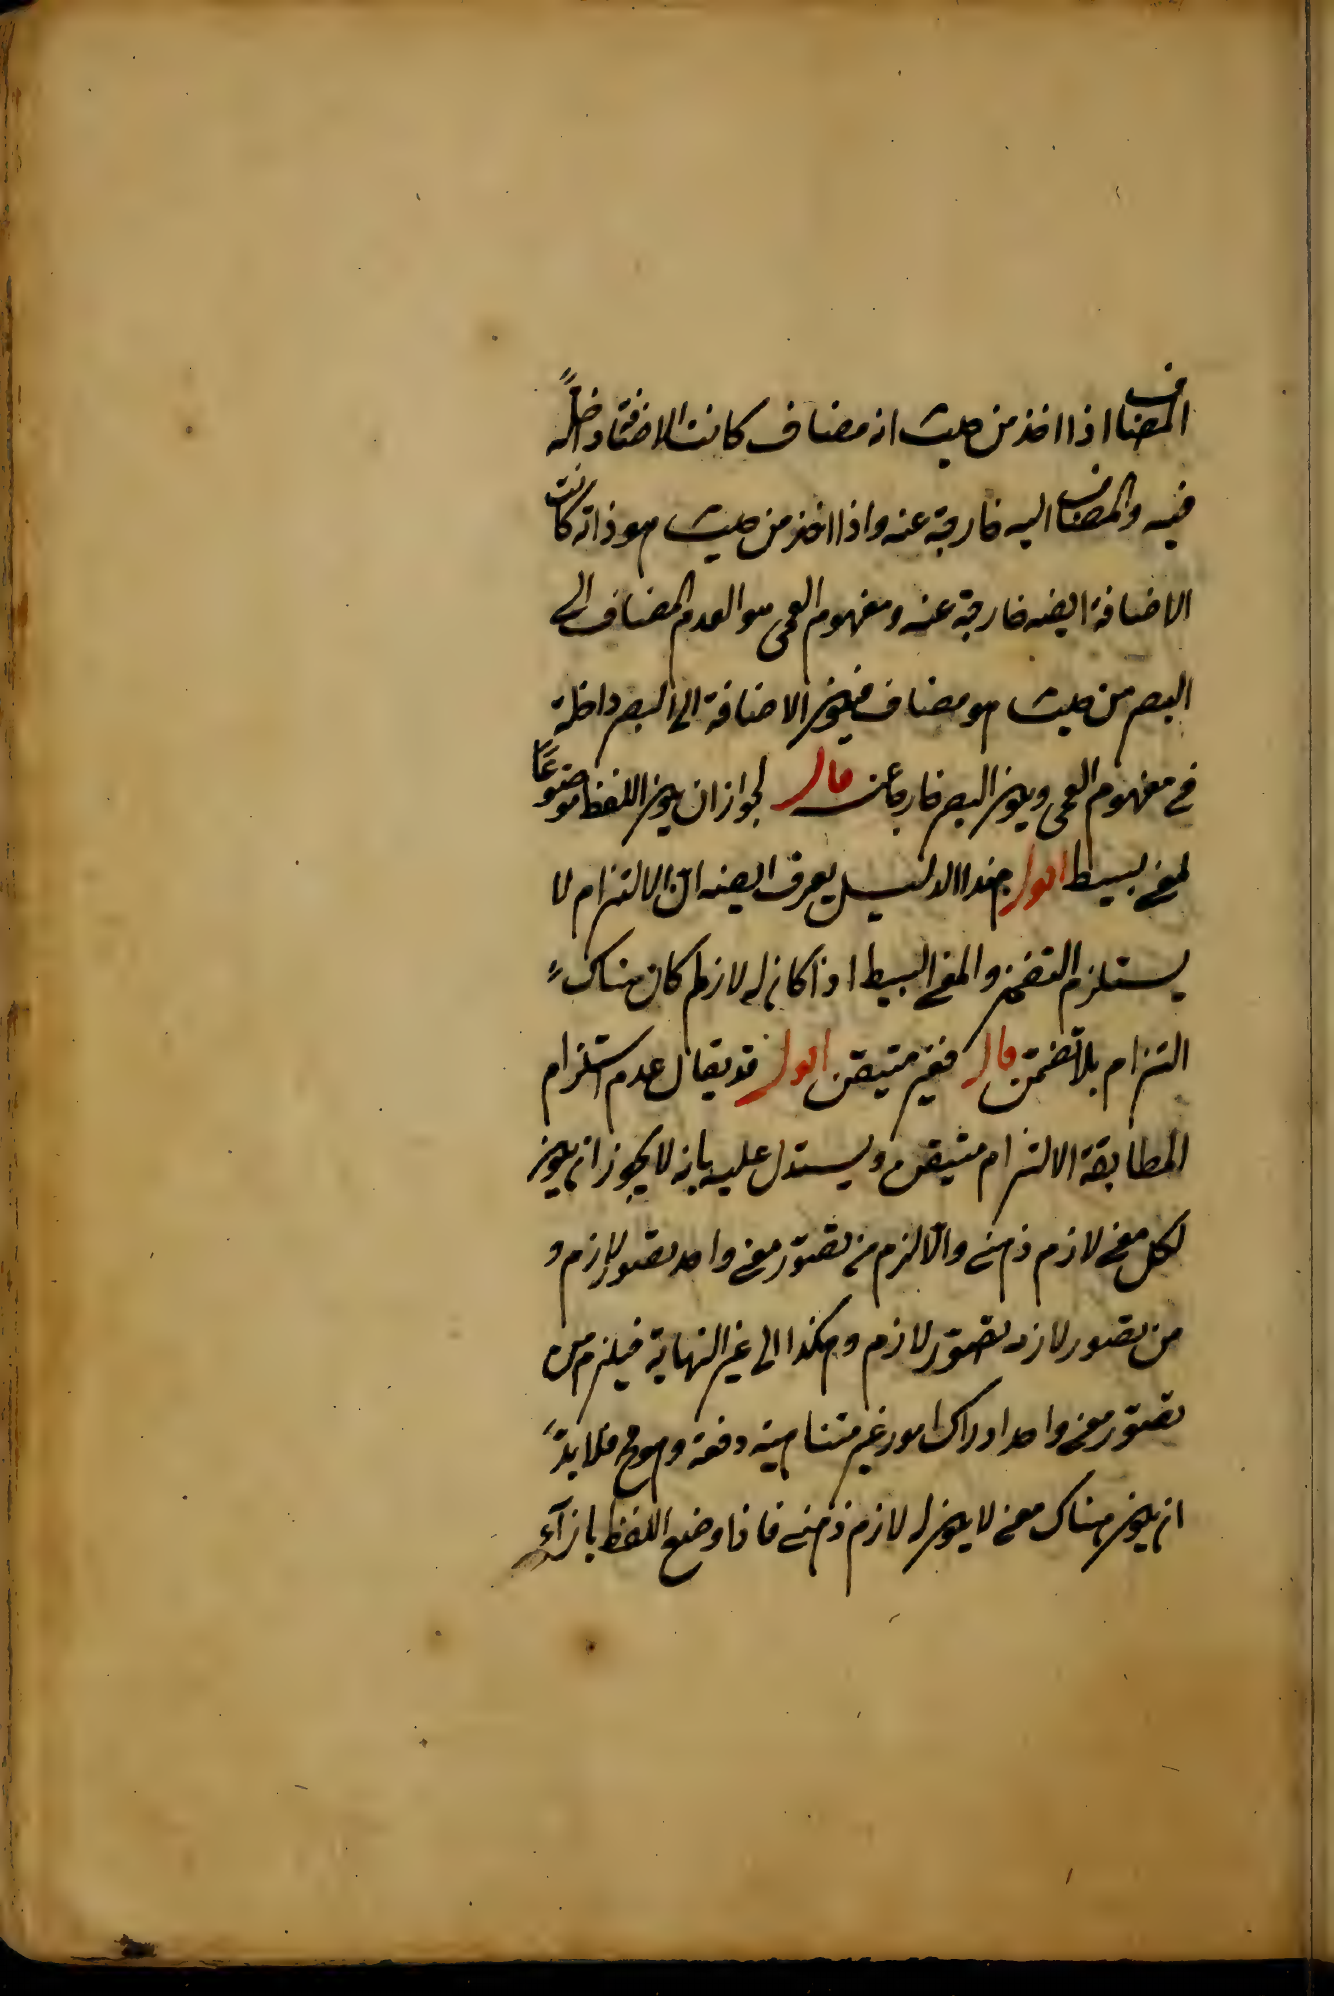 المضاف اذا اخذ من حيث انه مضاف كانت الاضافة داخلة
فيه والمضاف اليه خارجة عنه واذا اخذ من حيث هو ذاته كانت
الاضافة ايضه خارجة عنه ومفهوم العمى هو العدم المضاف الى
البصر من حيث هو مضاف فيكون الاضافة الى البصر داخلة
فى مفهوم العمى ويكون البصر خارجا عنه قال لجواز ان يكون اللفظ موضوعًا
لمعنى بسيط اقول بهذا الدليل يعرف ايضه ان الالتزام لا
يستلزم التضمن والمعنى البسيط اذا كان له لازم كان هناك
التزام بلا تضمّن قال فغير متيقن اقول قد يقال عدم استلزام
المطابقة الالتزام متيقن ويستدل عليه بانه لا يجوز ان يكون
لكل معنى لازم ذهنى والّا لزم من تصوّر معنى واحد تصور لازم و
من تصور لازمه تصوّر لازم وهكذا الى غير النهاية فيلزم من
تصوّر معنى واحد ادراك امور غير متناهية دفعة وهو مح فلا بدّ
ان يكون هناك معنى لا يكون له لازم ذهنى فاذا وضع اللفظ بازآء